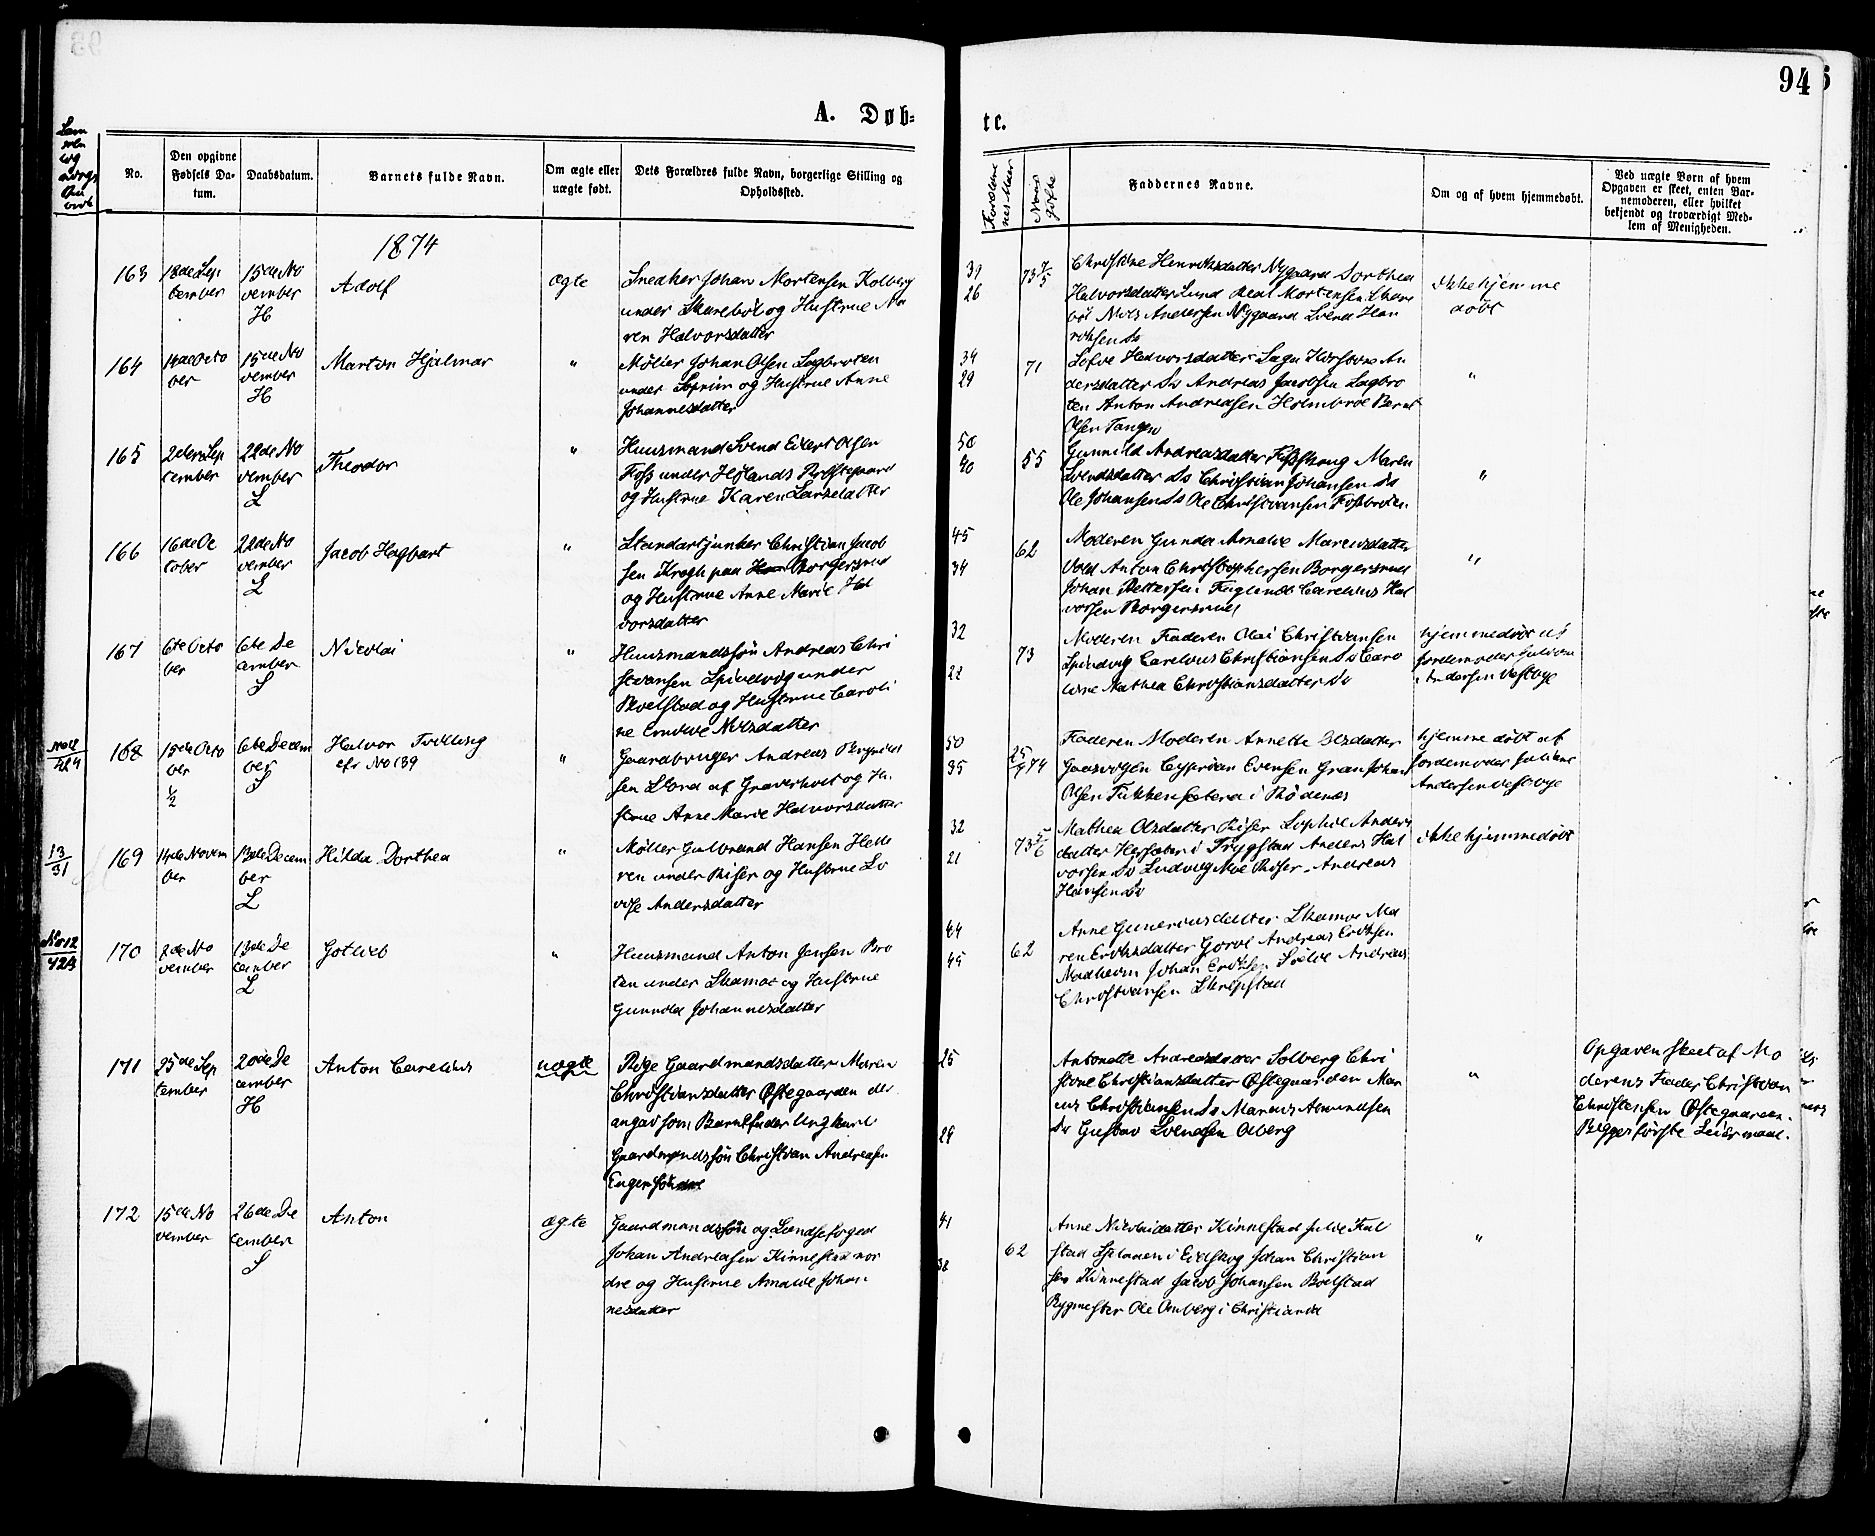 94
A. Døb-
te.
No.
Den opgivne
Fødsels Da-
tum.
Daabsdatum.
Barnets fulde Navn.
Om ægte eller
uægte født.
Dets Forældres fulde Navn, borgerlige Stilling og
Opholdssted.
Faddernes Navne.
Om og af hvem hjemmedøbt.
Ved uægte Børn af hvem
Opgaven er skeet, enten Bar-
nemoderen, eller hvilket
bekjendt og troværdigt Med-
lem af Menigheden.
1874
163
18de Sep
tember
15de No
vember
H
Adolf
ægte
Snedker Johan Mortensen Kolberg
under Skarebøl og Hustrue Ma
ren Halvorsdatter
31
26
73 7/5
Christine Henriksdatter Nygaard Dorthea
Halvorsdatter Lund Mortensen
Nils Andersen Nygaard Svend Hen
riksen Do
ikke hjemme
døbt
164
14de Octo
ber
15de No
vember
H
Marton Hjalmar
"
Møller Johan Olsen Sagbroten
under og Hustrue Anne
Johannesdatter
34
29
71
Halvorsdatter An
dersdatter Do Andreas Jacobsen Sagbro
ten Anton Andreasen Holmbroe Bernt
Olsen Tangen
"
165
2den Sep
tember
22de No
vember
L
Theodor
"
Huusmand Svend Eilert Olsen
Foss under Hølands Prestegaard
og Hustrue Karen Larsdatter
50
40
55
Gunnild Andreasdatter Maren
Svendsdatter Do Christian Johansen Do
Ole Johansen Do Ole Christiansen Fossbroten
"
166
16de Oc
tober
22de No
vember
L
Jacob Hagbart
"
Standartjunker Christian Jacob
sen Krogh paa Borgersrud
og Hustrue Anne Marie Hal
vorsdatter
45
34
62
Moderen Gunda Amalie Mariusdatter
Vold Anton Christophersen Borgersrud
Johan Pettersen Carelius Hal
vorsen Borgersrud
"
167
6te Octo
ber
6te De
cember
S
Nicolai
"
Huusmandssøn Andreas Chri
stiansen Spindvig under
Bøelstad og Hustrue Caroli
ne Emilie Nilsdatter
32
22
73
Moderen Faderen Olai Christiansen
Spindvig Carelius Christiansen Do Caro
line Mathea Christiansdatter Do
hjemmedøbt af
Jordemoder
Andersen Vestbye
168
15de Octo
ber
1/2
6te Decem
ber
S
Halvor Tvilling
cfr No 139
"
Gaardbruger Andreas Brynild
sen af Graverholt og Hu
strue Anne Marie Halvorsdatter
50
35
25/9 74
Faderen Moderen Annette Olsdatter
Cyprian Evensen Gran Johan
Olsen i Rødenæs
hjemmedøbt af
Jordemoder
Andersen Vestbye
13
31
169
14de Novem
ber
13de Decem
ber
L
Hilda Dorthea
"
Møller Gulbrand Hansen Helle
ren under Riser og Hustrue Lo
vise Andersdatter
32
21
73 5/6
Mathea Olsdatter Riser Sophie Anders
datter i Trygstad Anders Hal
vorsen Do Ludvig Moe Riser Andreas
Hansen Do
ikke hjemmedøbt
No 12
423
170
2de No
vember
13de De
cember
L
Gotlieb
"
Huusmand Anton Jensen Bro
ten under Skamar og Hustrue
Gunnild Johannesdatter
44
45
62
Anne Gunerius datter Skamar Ma
ren Eriksdatter Andreas Eriksen
Johan Eriksen Andreas
Christiansen Skripstad
171
25de Sep
tember
20de De
cember
H
Anton Carelius
uægte
Pige Gaardmandsdatter Maren
Christiansdatter Østegaarden der
angav som Barnefader Ungkarl
Gaardmandssøn Christian Andreasen
Enger søndre
25
29
Antonette Andreasdatter Solberg Chri
stine Christiansdatter Østegaarden Mar
ius Christiansen Do Marius Amundsen
Do Gustav Svendsen Aaberg
"
Opgaven skeet af Mo
derens Fader Christian
Christensen Østegaarden.
Begges første Leiermaal.
172
15de No
vember
26de De
cember
S
Anton
ægte
Gaardmandssøn og Landsefoged
Johan Andreasen Kinnestad nor
dre og Hustrue Amalie Johan
nesdatter
41
38
62
Anne Nicolaidatter Kinnestad Julie
i Eidskog Johan Christian
sen Kinnestad Jacob Johansen Bøelstad
Bygmester Ole Omberg i Christiania
"